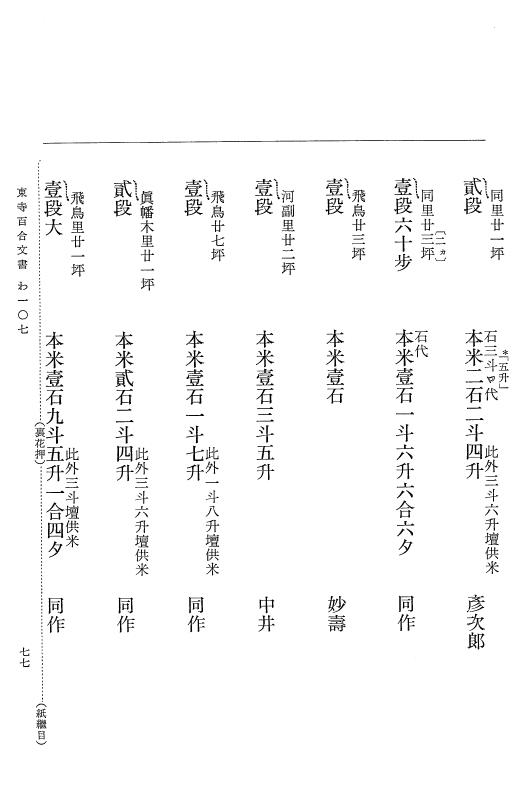 同里廿一坪
貳段
＊「五升」
石三斗〻代
此外三斗六升壇供米
本米二石二斗四升　彥次郎
同里廿三坪
〔二ヵ〕
壹段六十步
石代
本米壹石一斗六升六合六夕　同作
飛鳥廿三坪
壹段　本米壹石　妙壽
河副里廿二坪
壹段　本米壹石三斗五升　中井
飛鳥廿七坪
壹段
此外一斗八升壇供米
本米壹石一斗七升　同作
眞幡木里廿一坪
貳段
此外三斗六升壇供米
本米貳石二斗四升　同作
飛鳥里廿一坪
壹段大
此外三斗壇供米
本米壹石九斗五升一合四夕　同作
（裏花押）
（紙繼目）
東寺百合文書　わ一〇七
七七